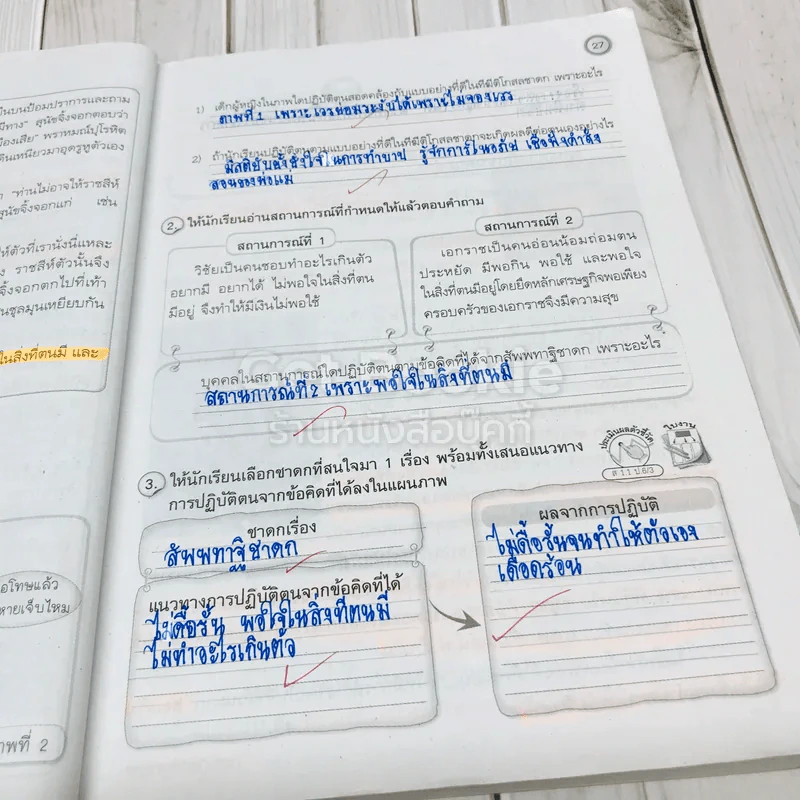 ป็นบนป้อมปราการและถาม
มีทาง" สุนัขจิ้งจอกตอบว่า
มืองเสีย" พราหมณ์ปุโรหิต
ดินเหนียวมาอุดรูหูตัวเอง
"ท่านไม่อาจให้ราชสีห์
สุนัขจิ้งจอกแก่ เช่น
ห์ตัวที่เรานั่งนี่แหละ
ราชสีห์ตัวนั้นจึง
จิ้งจอกตกไปที่เท้า
นชุลมุนเหยียบกัน
ในสิ่งที่ตนมี และ
อโทษแล้ว
หายเจ็บไหม
าพที่ 2
27
1) เด็กผู้หญิงในภาพใดปฏิบัติตนสอดคล้องกับแบบอย่างที่ดีในทีฆีติโกสลชาดก เพราะอะไร
ภาพที่ 1 เพราะเวรย่อมระงับได้เพราะไม่จองเวร
2) ถ้านักเรียนปฏิบัติตนตามแบบอย่างที่ดีในทีฆีติโกสลชาดกจะเกิดผลดีต่อตนเองอย่างไร
มีสติยับยั้งชั่งใจในการทำบาป รู้จักการให้อภัย เชื่อฟังคำสั่ง
สอนของพ่อแม่
2. ให้นักเรียนอ่านสถานการณ์ที่กำหนดให้แล้วตอบคำถาม
สถานการณ์ที่ 1
วิชัยเป็นคนชอบทำอะไรเกินตัว
อยากมี อยากได้ ไม่พอใจในสิ่งที่ตน
มีอยู่ จึงทำให้มีเงินไม่พอใช้
สถานการณ์ที่ 2
เอกราชเป็นคนอ่อนน้อมถ่อมตน
ประหยัด มีพอกิน พอใช้ และพอใจ
ในสิ่งที่ตนมีอยู่โดยยึดหลักเศรษฐกิจพอเพียง
ครอบครัวของเอกราชจึงมีความสุข
บุคคลในสถานการณ์ใดปฏิบัติตนตามข้อคิดที่ได้จากสัพพทาฐิชาดก เพราะอะไร
สถานการณ์ที่ 2 เพราะพอใจในสิ่งที่ตนมี
ร้านหนังสือบุ๊คกี้
3. ให้นักเรียนเลือกชาดกที่สนใจมา 1 เรื่อง พร้อมทั้งเสนอแนวทาง
การปฏิบัติตนจากข้อคิดที่ได้ลงในแผนภาพ
ประเมินผลตัวชี้วัด
ส 1.1 ป.6/3
ใบงาน
ชาดกเรื่อง
สัพพทาฐิชาดก
แนวทางการปฏิบัติตนจากข้อคิดที่ได้
ไม่ดื้อรั้น พอใจในสิ่งที่ตนมี
ไม่ทำอะไรเกินตัว
ผลจากการปฏิบัติ
ไม่ดื้อรั้นจนทำให้ตัวเอง
เดือดร้อน